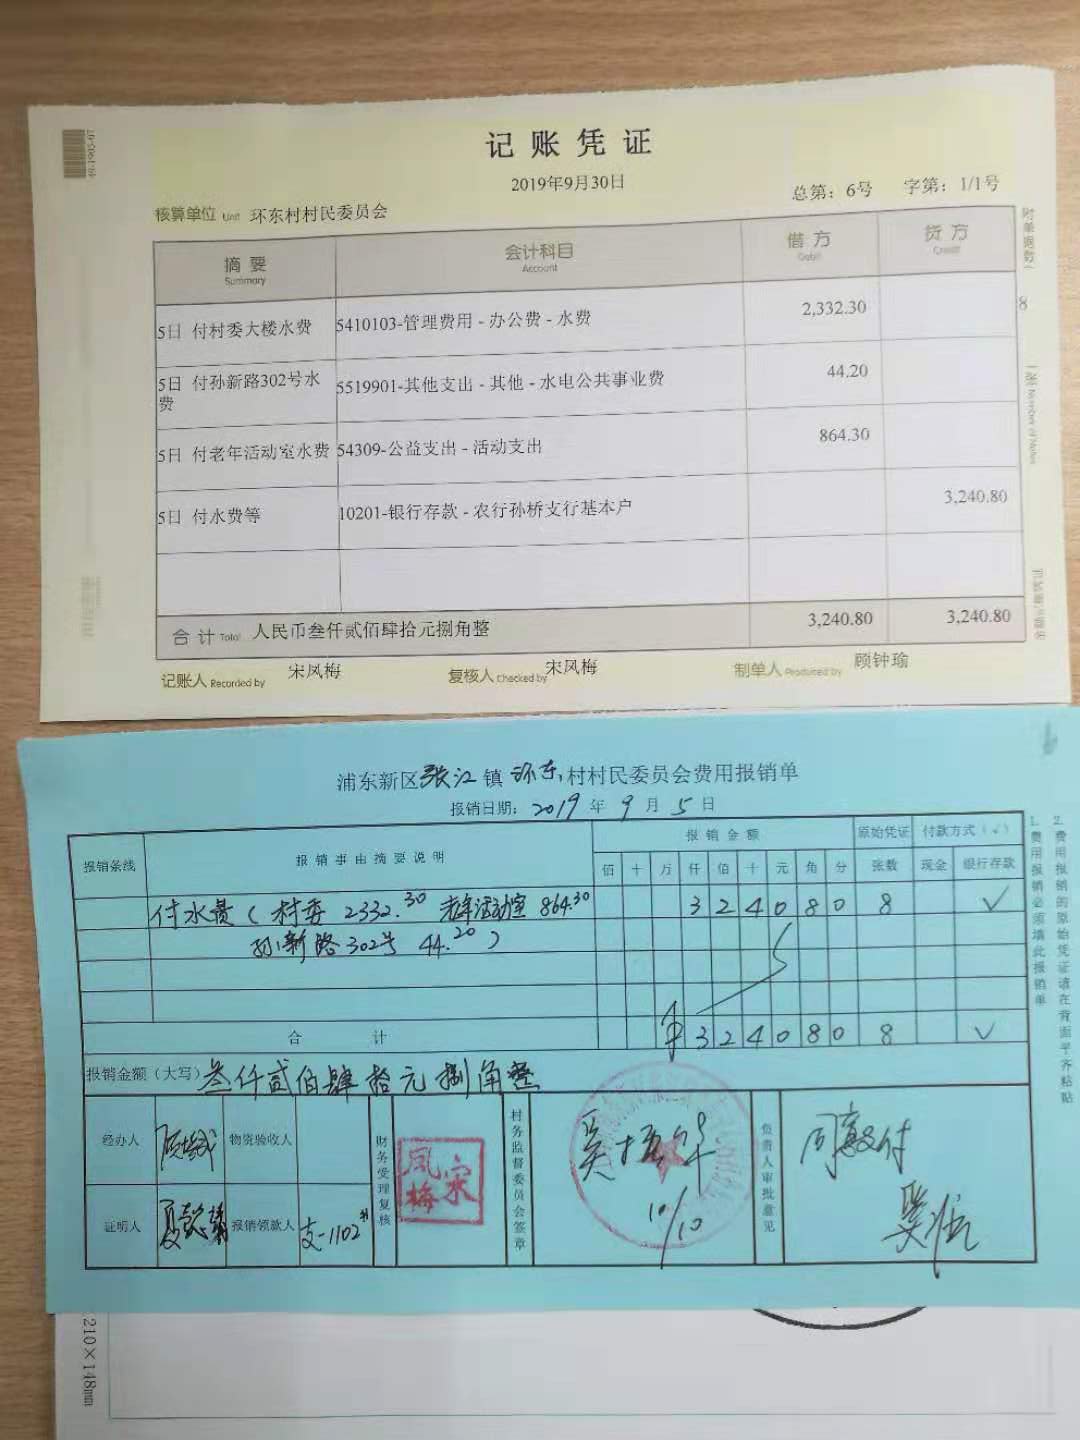 记账凭证
2019年9月30日
总第：6号 字第：1/1号
核算单位 Unit 环东村村民委员会
摘要 Summary 会计科目 Account 借方 Debit 贷方 Credit
5日 付村委大楼水费 5410103-管理费用 - 办公费 - 水费 2,332.30
5日 付孙新路302号水费 5519901-其他支出 - 其他 - 水电公共事业费 44.20
5日 付老年活动室水费 54309-公益支出 - 活动支出 864.30
5日 付水费等 10201-银行存款 - 农行孙桥支行基本户 3,240.80
合计 Total 人民币叁仟贰佰肆拾元捌角整 3,240.80 3,240.80
记账人 Recorded by 宋凤梅 复核人 Checked by 宋凤梅 制单人 Produced by 顾钟瑜
附单据数 8 张 Number of Notes
浦东新区张江镇环东村村民委员会费用报销单
报销日期： 2019年9月5日
报销条线 报销事由摘要说明 报销金额 原始凭证 付款方式（√）
佰 十 万 仟 佰 十 元 角 分 张数 现金 银行存款
付水费（村委 2332.30 老年活动室 864.30 3 2 4 0 8 0 8 √
孙新路302号 44.20）
合计 ¥ 3 2 4 0 8 0 8 √
报销金额（大写）叁仟贰佰肆拾元捌角整
经办人 物资验收人 财务受理复核 凤梅宋 村务监督委员会签章 10/10 负责人审批意见 同意付
证明人 报销领款人 支-1102#
1.费用报销必须填此报销单
2.费用报销的原始凭证请在背面平齐粘贴
210×148mm